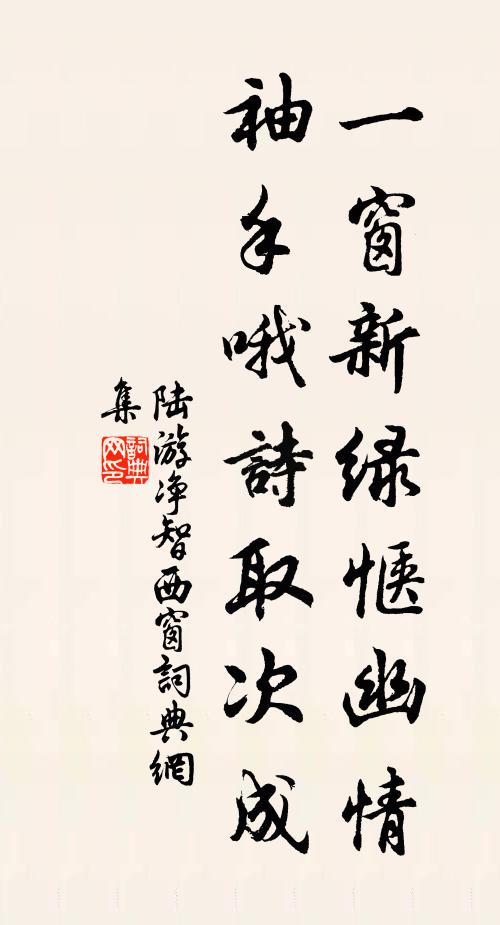 一窗新绿惬幽情
袖手哦詩取次成
陆游净智西窗詞典網
集
詞典网印